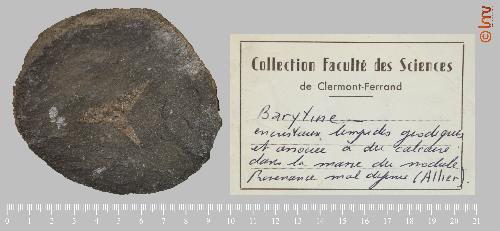 Collection Faculté des Sciences
de Clermont-Ferrand
Barytine
en cristaux limpides geodiques
et associé à du calcaire
dans la masse du nodule
Provenance mal définie (Allier).
0 1 2 3 4 5 6 7 8 9 10 11 12 13 14 15 16 17 18 19 20 21